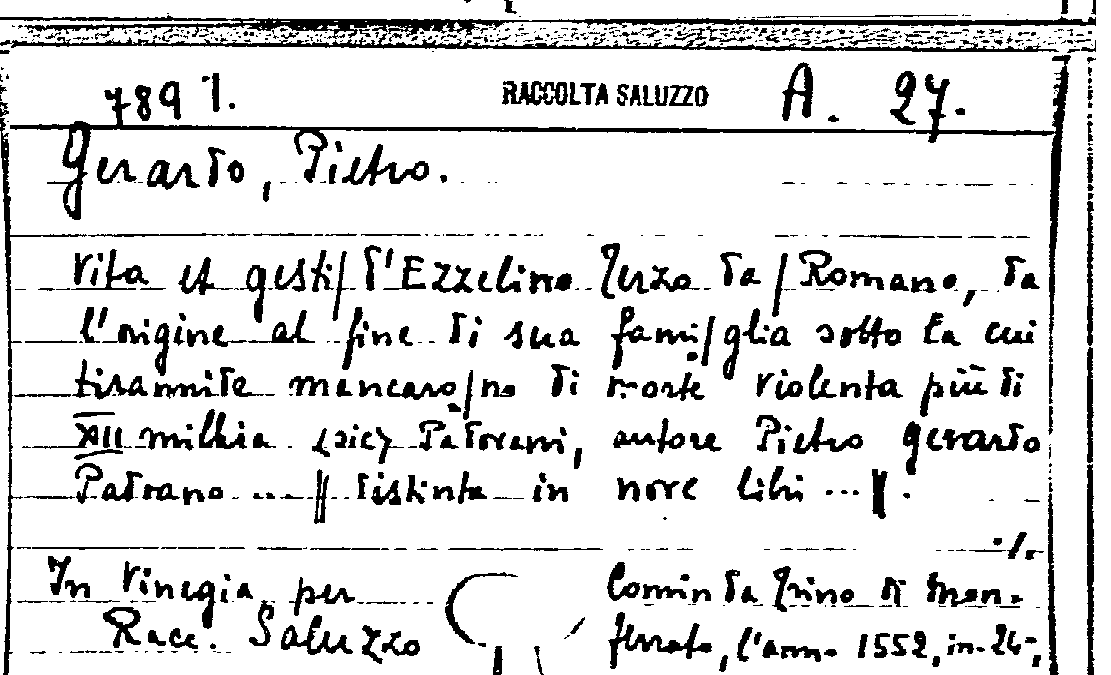 7891. RACCOLTA SALUZZO A. 27.
Gerardo, Pietro.
Vita et gesti/ d'Ezzelino Terzo da / Romano, da
l'origine al fine di sua fami/glia sotto la cui
tirannide mancaro/no di morte violenta più di
XII millia <sic> Padovani, autore Pietro Gerardo
Padoano ... || distinta in nove libri ... ||.
./.
In Vinegia per Comin da Trino di Mon-
Racc. Saluzzo ferrato, l'anno 1552, in-24°,